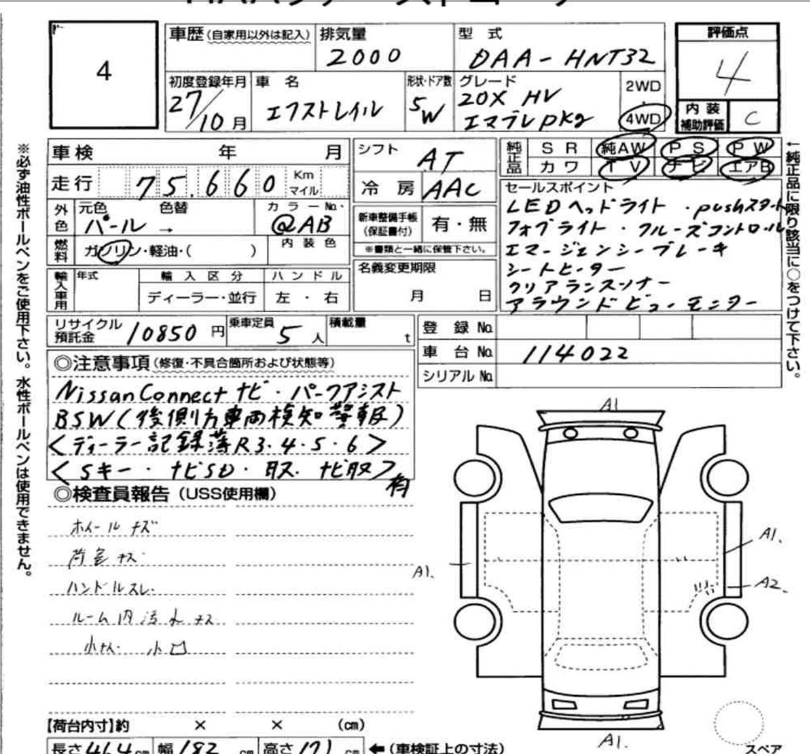 4
車歴(自家用以外は記入)
排気量
2000
型式
DAA-HNT32
評価点
4
初度登録年月
27/10月
車名
エクストレイル
形状・ドア数
5W
グレード
20X HV
エマブレpkg
2WD
4WD
内装
補助評価
C
車検 年 月
走行 75,660 Km マイル
外色 元色 色替 カラーNo.
パール → @AB
燃料 ガソリン・軽油・( ) 内装色
輸入車用 年式 輸入区分 ハンドル
ディーラー・並行 左・右
シフト AT
冷房 AAC
新車整備手帳
(保証書付) 有・無
※書類と一緒に保管下さい。
名義変更期限
月 日
純正品 SR 純AW PS PW
カワ TV ナビ エアB
セールスポイント
LEDヘッドライト・pushスタート
フォグライト・クルーズコントロール
エマージェンシーブレーキ
シートヒーター
クリアランスソナー
アラウンドビューモニター
リサイクル
預託金 10850円
乗車定員 5人
積載量 t
登録No.
車台No. 114022
シリアルNo.
◎注意事項(修復・不具合箇所および状態等)
NissanConnectナビ・パークアシスト
BSW(後側方車両検知警報)
<ディーラー記録簿R3・4・5・6>
<Sキー・ナビSD・取ス・ナビ取ス>有
◎検査員報告(USS使用欄)
ホイールキズ
荷室キズ
ハンドルスレ
ルーム内
A1.
A1.
A1.
A2.
A1.
スペア
【荷台内寸】約 × × (cm)
長さ464cm 幅182cm 高さ171cm ←(車検証上の寸法)
※必ず油性ボールペンをご使用下さい。水性ボールペンは使用できません。
←純正品に限り該当に○をつけて下さい。